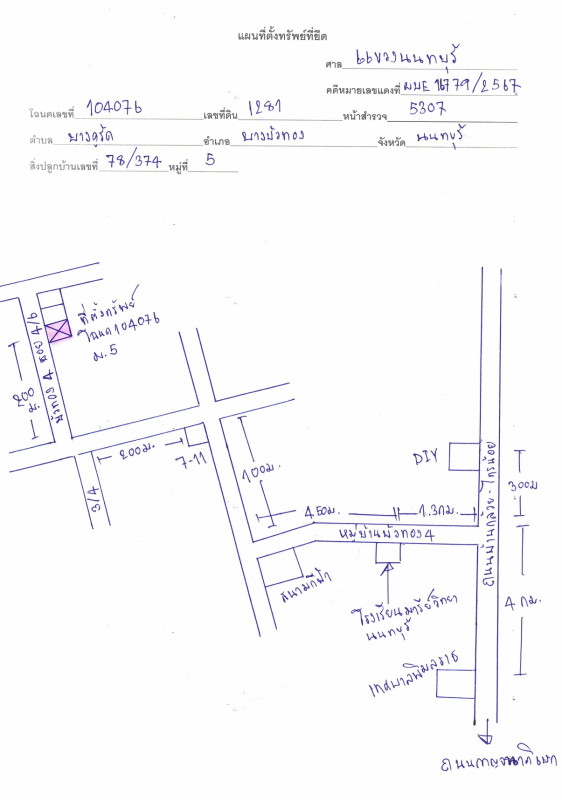 แผนที่ตั้งทรัพย์ที่ยึด
ศาล แขวงนนทบุรี
คดีหมายเลขแดงที่ ผบE 16779/2567
โฉนดเลขที่ 104076 เลขที่ดิน 1281 หน้าสำรวจ 5307
ตำบล บางคูรัด อำเภอ บางบัวทอง จังหวัด นนทบุรี
สิ่งปลูกบ้านเลขที่ 78/374 หมู่ที่ 5
ที่ตั้งทรัพย์
โฉนด 104076
ม.5
บัวทอง 4 ซอย 4/6
200 ม.
200 ม.
7-11
3/4
100 ม.
450 ม.
1.3 กม.
หมู่บ้านบัวทอง 4
สนามกีฬา
โรงเรียนมารีย์วิทยา
นนทบุรี
DIY
ถนนบ้านกล้วย-ไทรน้อย
300 ม
4 กม.
เทศบาลพิมลราช
ถนนกาญจนาภิเษก